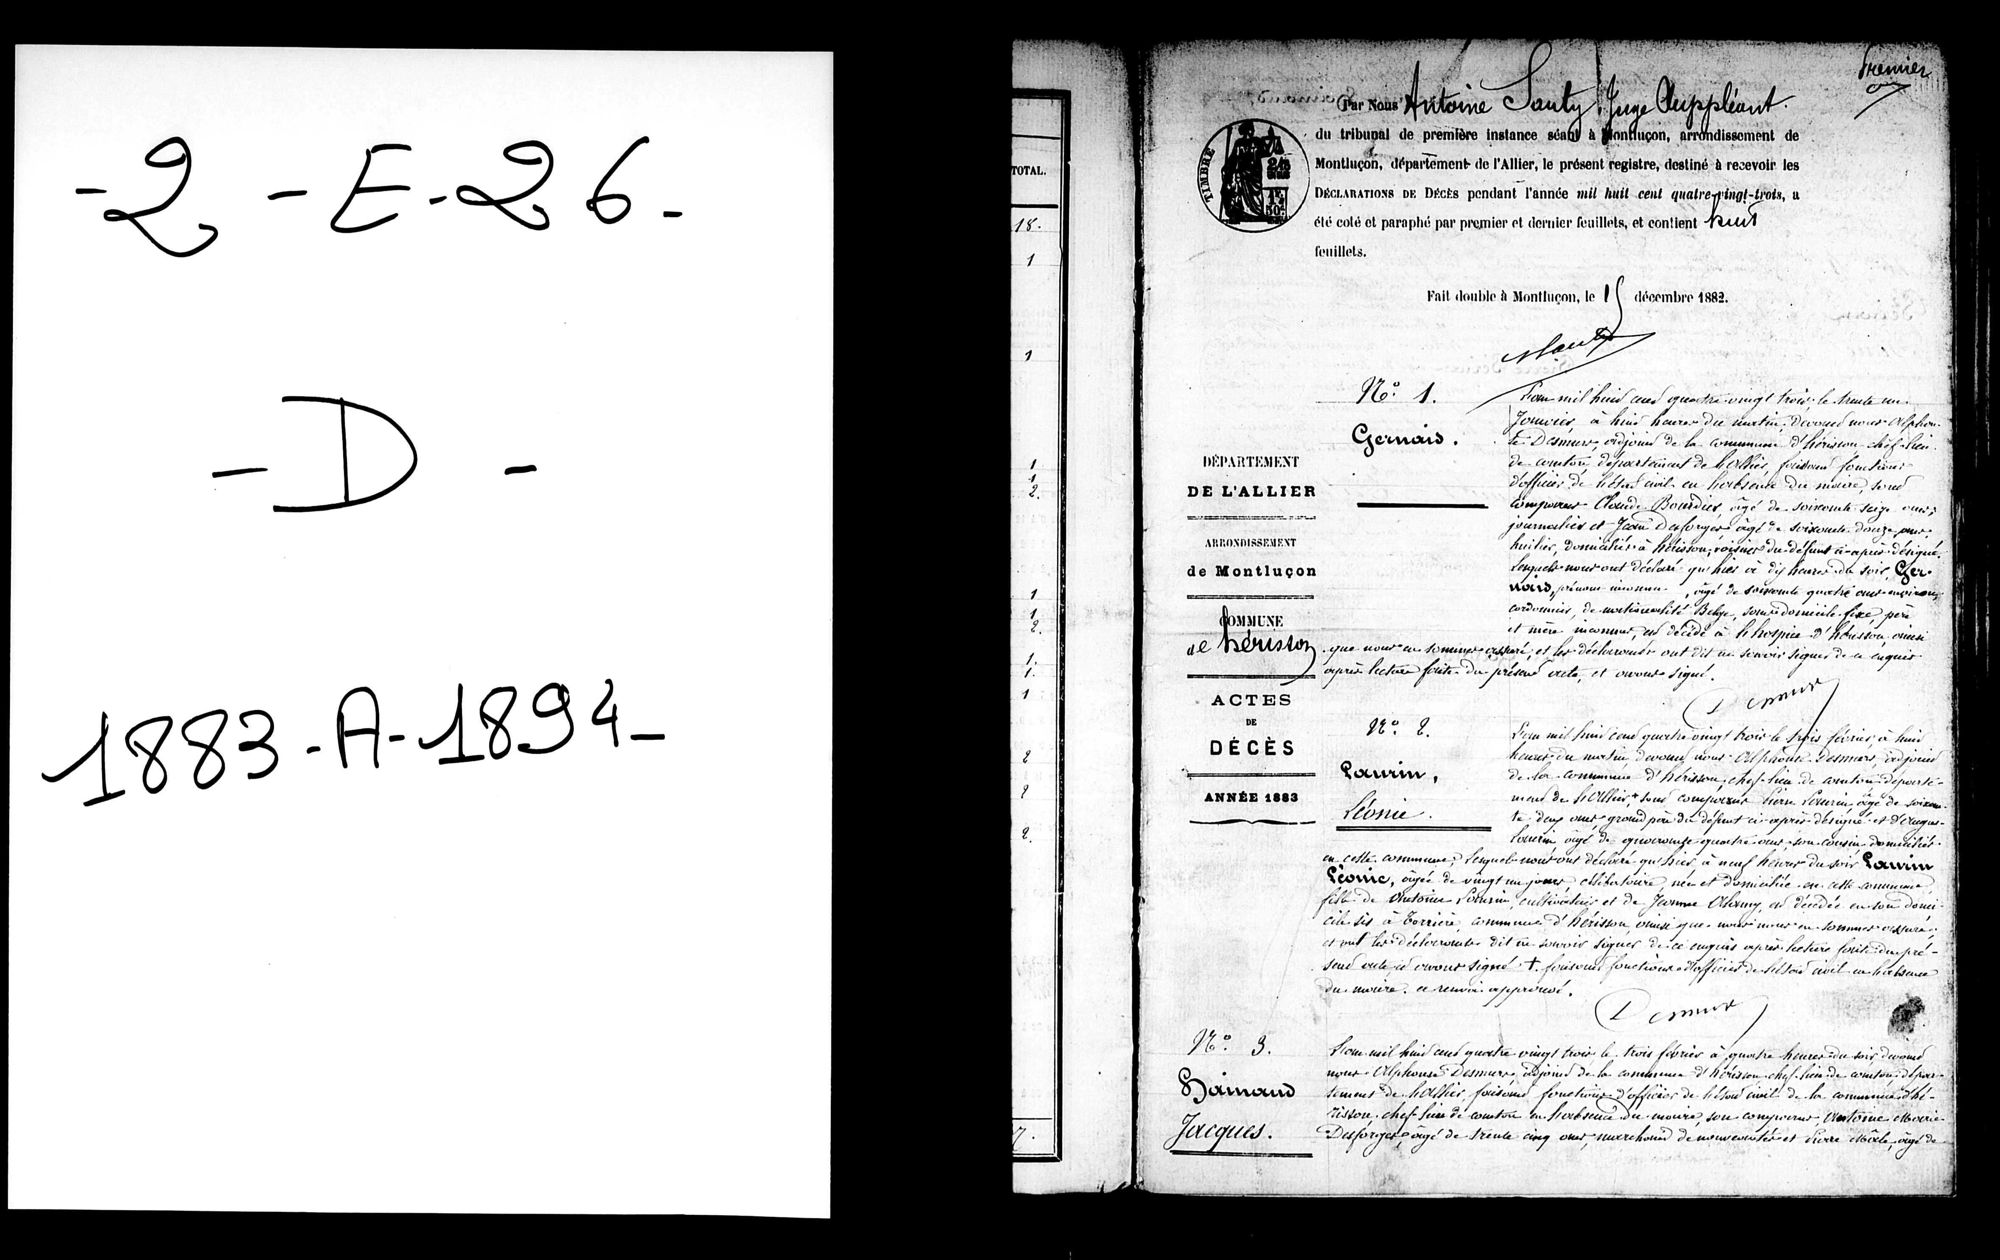 - 2 - E - 26 -
- D -
1883 - A - 1894 -
TOTAL.
18.
1
1
1
1
2.
1
1.
2.
1.
1.
1
2
2
2.
7.
Premier
Par Nous Antoine Sauty, Juge Suppléant.
du tribunal de première instance séant à Montluçon, arrondissement de
Montluçon, département de l'Allier, le présent registre, destiné à recevoir les
DÉCLARATIONS DE DÉCÈS pendant l'année mil huit cent quatre-vingt-trois, a
été coté et paraphé par premier et dernier feuillets, et contient huit
feuillets.
TIMBRE
Fait double à Montluçon, le 15 décembre 1882.
DÉPARTEMENT
DE L'ALLIER
ARRONDISSEMENT
de Montluçon
COMMUNE
de hérisson
ACTES
DE
DÉCÈS
ANNÉE 1883
N° 1.
Gernais.
L'an mil huit cent quatre vingt trois le trente un
Janvier, à huit heures du matin, devant nous Alphon-
se Desmurs, adjoint de la commune d'hérisson chef-lieu
de canton, département de l'allier, faisant fonctions
d'officier de l'état civil en l'absence du maire, sont
comparus Claude Bourdier, âgé de soixante seize ans,
journalier et Jean Desforges âgé de soixante douze ans,
huilier, domiciliés à hérisson, voisins du défunt ci-après désigné.
Lesquels nous ont déclaré qu'hier à dix heures du soir, Ger-
nais, prénom inconnu, âgé de soixante quatre ans environ,
cordonnier, de nationalité Belge, sans domicile fixe, père
et mère inconnus, est décédé à l'hospice d'hérisson ainsi
que nous nous en sommes assuré, et les déclarants ont dit ne savoir signer de ce enquis
après lecture faite du présent acte, et avons signé.
Desmurs
N° 2.
Laurin,
Léonie.
L'an mil huit cent quatre vingt trois le trois février, à huit
heures du matin, devant nous Alphonse Desmurs, adjoint
de la commune d'hérisson, chef-lieu de canton, départe-
ment de l'allier, + sont comparus Pierre Laurin, âgé de soixan-
te deux ans grand père du défunt ci-après désigné et
Laurin âgé de quarante quatre ans, son cousin domiciliés
en cette commune, lesquels nous ont déclaré qu'hier, à neuf heures du soir Laurin
Léonie, âgée de vingt un jours, célibataire, née et domiciliée en cette commune
fille de Antoine Laurin, cultivateur et de Jeanne est décédée en son domi-
cile sis à commune d'hérisson, ainsi que nous nous en sommes assuré,
et ont les déclarants dit ne savoir signer de ce enquis après lecture faite du pré-
sent acte, et avons signé + faisant fonctions d'officier de l'état civil en l'absence
du maire. ce renvoi approuvé.
Desmurs
N° 3.
Hainaud
Jacques.
L'an mil huit cent quatre vingt trois le trois février à quatre heures du soir devant
nous Alphonse Desmurs, adjoint de la commune d'hérisson chef-lieu de canton, dépar-
tement de l'allier, faisant fonctions d'officier de l'état civil de la commune d'hé-
risson chef-lieu de canton en l'absence du maire, sont comparus, Antoine Marie
Desforges, âgé de trente cinq ans, marchand de nouveautés et Pierre âgé de